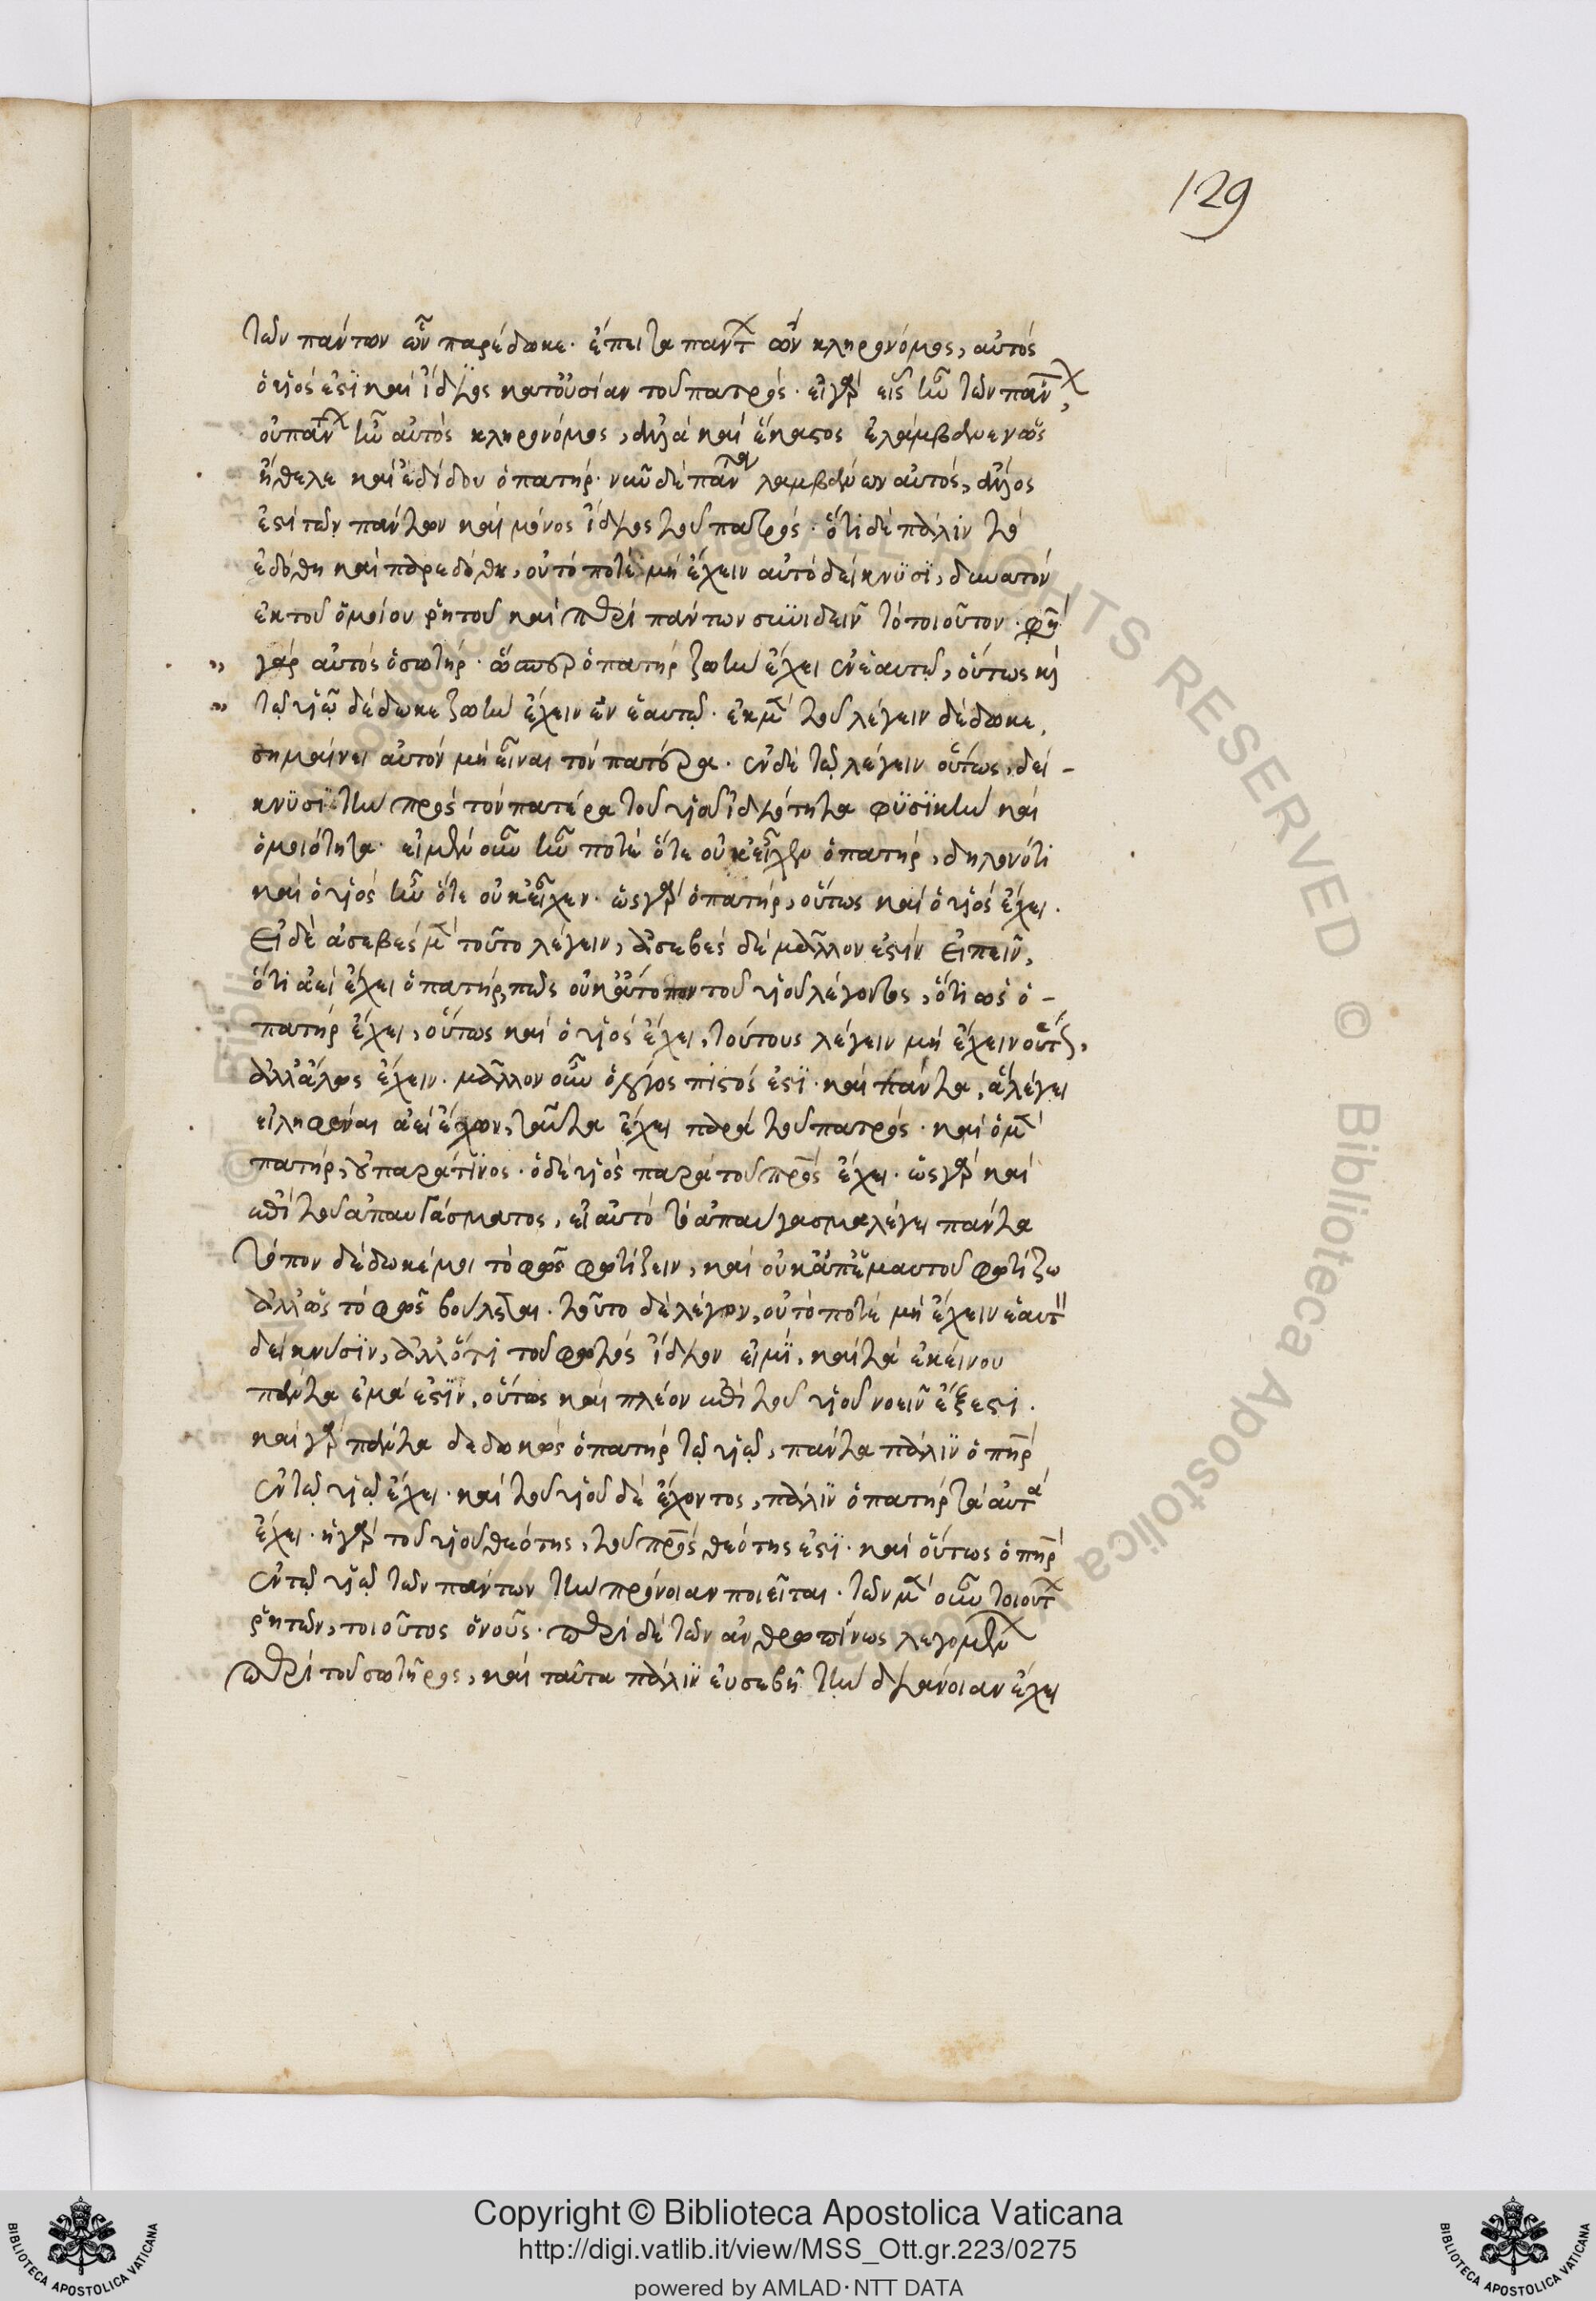 129
τῶν πάντων ὧν παρέδωκε· ἔπειτα πάντων ὢν κληρονόμος, αὐτὸς
ὁ υἱός ἐστι καὶ ἴδιος κατ' οὐσίαν τοῦ πατρός· εἰ γὰρ εἷς ἦν τῶν πάντων,
οὐ πάντων ἦν αὐτὸς κληρονόμος, ἀλλὰ καὶ ἕκαστος ἐλάμβανεν ὡς
ἤθελε καὶ ἐδίδου ὁ πατήρ· νῦν δὲ πάντα λαμβάνων αὐτός, ἄλλος
ἐστὶ τῶν πάντων καὶ μόνος ἴδιος τοῦ πατρός· ὅτι δὲ πάλιν τὸ
ἐδόθη καὶ παρεδόθη, οὐ τό ποτε μὴ ἔχειν αὐτὸ δείκνυσι, δυνατὸν
ἐκ τοῦ ὁμοίου ῥητοῦ καὶ περὶ πάντων συνιδεῖν τὸ τοιοῦτον· φησὶ
γὰρ αὐτὸς ὁ σωτήρ· ὥσπερ ὁ πατὴρ ζωὴν ἔχει ἐν ἑαυτῷ, οὕτως καὶ
τῷ υἱῷ δέδωκε ζωὴν ἔχειν ἐν ἑαυτῷ· ἐκ μὲν τοῦ λέγειν δέδωκε,
σημαίνει αὐτὸν μὴ εἶναι τὸν πατέρα· ἐν δὲ τῷ λέγειν οὕτως, δεί-
κνυσι τὴν πρὸς τὸν πατέρα τοῦ υἱοῦ ἰδιότητα φυσικὴν καὶ
ὁμοιότητα· εἰ μὲν οὖν ἦν ποτε ὅτε οὐκ εἶχεν ὁ πατήρ, δηλονότι
καὶ ὁ υἱὸς ἦν ὅτε οὐκ εἶχεν· ὡς γὰρ ὁ πατήρ, οὕτως καὶ ὁ υἱὸς ἔχει.
Εἰ δὲ ἀσεβὲς μὲν τοῦτο λέγειν, ἀσεβὲς δὲ μᾶλλόν ἐστιν εἰπεῖν,
ὅτι ἀεὶ ἔχει ὁ πατήρ, πῶς οὐκ ἄτοπον τοῦ υἱοῦ λέγοντος, ὅτι ὡς ὁ
πατὴρ ἔχει, οὕτως καὶ ὁ υἱὸς ἔχει, τούτους λέγειν μὴ ἔχειν οὕτως,
ἀλλ' ἄλλως ἔχειν· μᾶλλον οὖν ὁ λόγος πιστός ἐστι· καὶ πάντα, ἃ λέγει
εἰληφέναι ἀεὶ ἔχων, ταῦτα ἔχει παρὰ τοῦ πατρός· καὶ ὁ μὲν
πατήρ, οὐ παρά τινος· ὁ δὲ υἱὸς παρὰ τοῦ πατρὸς ἔχει· ὡς γὰρ καὶ
ἐπὶ τοῦ ἀπαυγάσματος, εἰ αὐτὸ τὸ ἀπαύγασμα λέγει πάντα
τόπον δέδωκέ μοι τὸ φῶς φωτίζειν, καὶ οὐκ ἀπ' ἐμαυτοῦ φωτίζω
ἀλλ' ὡς τὸ φῶς βούλεται· τοῦτο δὲ λέγον, οὐ τό ποτε μὴ ἔχειν ἑαυτὸ
δείκνυσιν, ἀλλ' ὅτι τοῦ φωτὸς ἴδιόν εἰμι, καὶ τὰ ἐκείνου
πάντα ἐμά ἐστιν, οὕτως καὶ πλέον ἐπὶ τοῦ υἱοῦ νοεῖν ἔξεστι.
καὶ γὰρ πάντα δεδωκὼς ὁ πατὴρ τῷ υἱῷ, πάντα πάλιν ὁ πατὴρ
ἐν τῷ υἱῷ ἔχει· καὶ τοῦ υἱοῦ δὲ ἔχοντος, πάλιν ὁ πατὴρ τὰ αὐτὰ
ἔχει· ἡ γὰρ τοῦ υἱοῦ θεότης, τοῦ πατρὸς θεότης ἐστί· καὶ οὕτως ὁ πατὴρ
ἐν τῷ υἱῷ τῶν πάντων τὴν πρόνοιαν ποιεῖται· τῶν μὲν οὖν τοιούτων
ῥητῶν, τοιοῦτος ὁ νοῦς· περὶ δὲ τῶν ἀνθρωπίνως λεγομένων
περὶ τοῦ σωτῆρος, καὶ ταῦτα πάλιν εὐσεβῆ τὴν διάνοιαν ἔχει
Copyright © Biblioteca Apostolica Vaticana
http://digi.vatlib.it/view/MSS_Ott.gr.223/0275
powered by AMLAD·NTT DATA